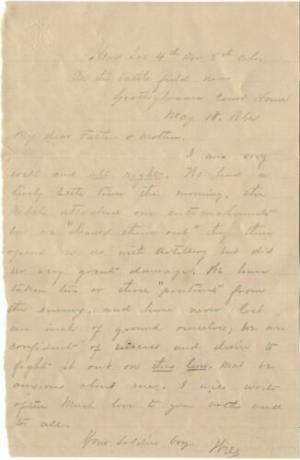 Hd Qrs 4th Div 5th A.C.
On the battle field near
Spottsylvania Court House
May 18. 1864
My dear Father & Mother,
I am very
well and all right. We had a
lively little time this morning. the
rebels attacked our entrenchments
but we "cleaned them out" they then
opened on us with Artillery but did
no very great damage. We have
taken two or three "positions" from
the enemy, and have never lost
an inch of ground ourselves, we are
confident of success and desire to
fight it out on this line. dont be
anxious about me. I will write
often Much love to you both and
to all.
Your Soldier boy
Will